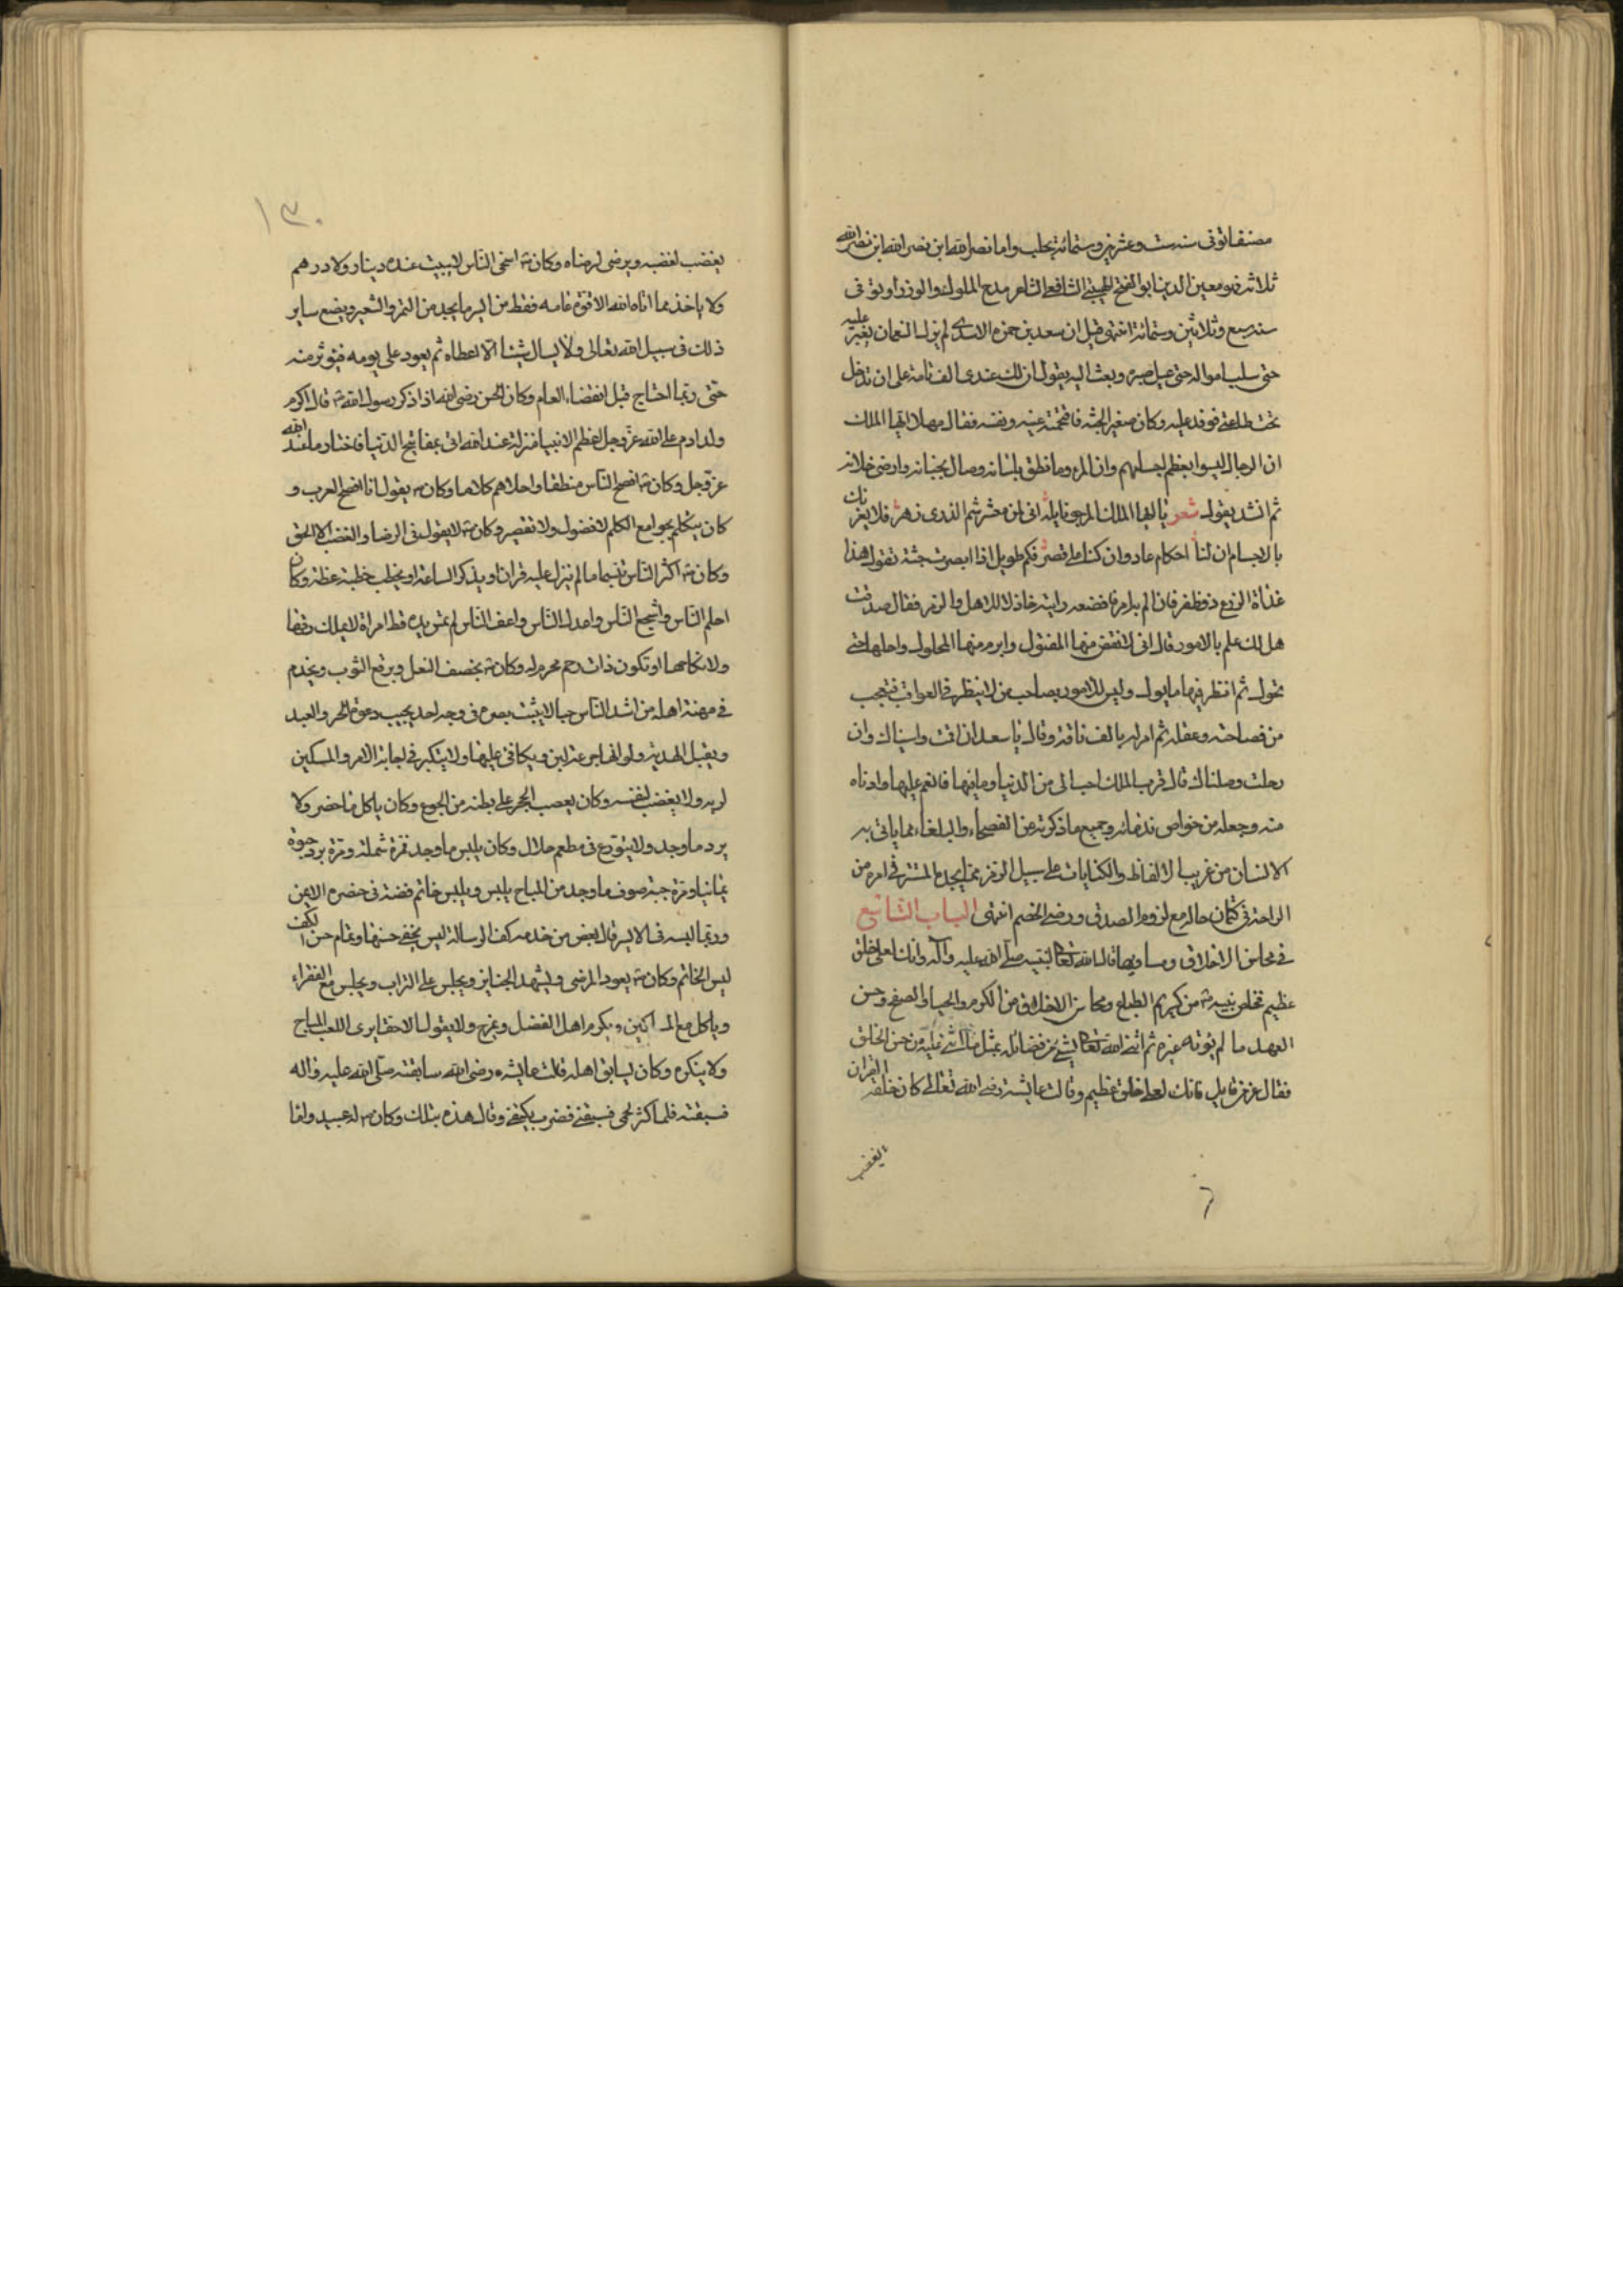 مصنفا توفى سنة ست وعشرين وستمائة بحلب واما نصر الله ابن نصر الله ابن نصر الله
ثلاثة فهو معين الدين ابو الفتح الشافعى الشاعر مدح الملوك والوزراء وتوفى
سنة سبع وثلاثين وستمائة انتهى قيل ان سعد بن حمزه الاسدى لم يزل النعمان يغير عليه
حتى سلب امواله حتى عيل صبره وبعث اليه يقول ان لك عندى الف ناقة على ان تدخل
تحت طاعتى فوفد عليه وكان صغير الجثه فاقتحمته عينه ونفسه فقال مهلا ايها الملك
ان الرجال ليسوا بعظم اجسامهم وان المرء وما نطق بلسانه وصال بجنانه وارضى خلانه
ثم انشد يقول شعر يا ايها الملك المرجو نايله انى لمن معشر شم الذرى زهر فلا يغرنك
بالاجسام ان لنا احكام عاد وان كنا على قصر فكم طويل اذا ابصرت جثته تقول هذا
غداة الروع ذو ظفر فان الم به امر فافضعه رايته خاذلا للاهل والزمر فقال صدقت
هل لك علم بالامور قال انى لانقض منها المفتول وابرم منها المحلول واجليها حتى
تجول ثم انظر فيها ما يول وليس للامور بصاحب من لا ينظر فى العواقب فتعجب
من فصاحته وعقله ثم امر له بالف ناقة وقال يا سعد ان اقمت واسيناك وان
رحلت وصلناك قال قرب الملك احب الى من الدنيا وما فيها فانعم عليها وادناه
منه وجعله من خواص ندمائه وجميع ما ذكرته من الفصحاء والبلغاء مما ياتى به
الانسان من غريب الالفاظ والكنايات على سبيل الرمز مما يجد المتستر فى امره من
الراحة فى كتمان حاله مع لزوم الصدق ورضى الخصم انتهى الباب التاسع
فى محاسن الاخلاق ومساويها قال الله تعالى لنبيه صلى الله عليه وآله وانك لعلى خلق
عظيم فخص نبيه من كريم الطباع ومحاسن الاخلاق من الكرم والحياء والصفح وحسن
العهد ما لم يؤته غيره ثم ما اثنى الله تعالى بشئ من فضائله بمثل ما اثنى عليه من حسن الخلق
فقال عز من قايل وانك لعلى خلق عظيم وقالت عايشة رضى الله تعالى كان خلقه القران
يغضب
١٣٠
يغضب لغضبه ويرضى لرضاه وكان اسخى الناس لا يبيت عنده دينار ولا درهم
ولا ياخذ مما اتاه الله الا قوة عامه فقط من ايسر ما يجد من التمر والشعير ويضع ساير
ذلك فى سبيل الله تعالى ولا يسال شيئا الا اعطاه ثم يعود على يومه فيوثر منه
حتى ربما احتاج قبل انقضاء العام وكان الحسن رضى الله اذا ذكر رسول الله قال اكرم
ولد ادم على الله عز وجل اعظم الانبيا منزلة عند الله اتى بمفاتيح الدنيا فاختار ما عند الله
عز وجل وكان افصح الناس منطقا واحلاهم كلاما وكان يقول انا افصح العرب و
كان يتكلم بجوامع الكلم لا فضول ولا تقصير وكان لا يقول فى الرضا والغضب الا الحق
وكان اكثر الناس تبسما ما لم ينزل عليه قران او يذكر الساعة او يخطب خطبة عظة وكان
احلم الناس واشجع الناس واعدل الناس واعف الناس لم تمس يده قط امراة لا يملك رقها
ولا نكاحها او تكون ذات رحم محرم له وكان يخصف النعل ويرقع الثوب ويخدم
فى مهنة اهله من اشد الناس حيا لا يثبت بصره فى وجه احد يجيب دعوة الحر والعبد
ويقبل الهدية ولو انها جرعة لبن ويكافى عليها ولا يتكبر فى اجابة الامة والمسكين
لربه ولا يغضب لنفسه وكان يعصب الحجر على بطنه من الجوع وكان ياكل ما حضر ولا
يرد ما وجد ولا يتورع فى مطعم حلال وكان يلبس ما وجد فمرة شملة ومرة برد حبرة
يمانيا ومرة جبة صوف ما وجد من المباح يلبس ويلبس خاتم فضة فى خنصره الايمن
وربما لبسه فى الايسر قال بعض من خدمه كف الرسالة ليس يخفى حسنها وتمام حسن الكف
لبس الخاتم وكان يعود المرضى ويشهد الجنايز ويجلس على التراب ويجلس مع الفقراء
وياكل مع المساكين ويكرم اهل الفضل ويمزح ولا يقول الا حقا يرى اللعب المباح
ولا ينكره وكان يسابق اهله قالت عايشه رضى الله سابقته صلى الله عليه واله
فسبقته فلما كثر لحمى فسبقنى فضرب بكتفى وقال هذه بتلك وكان له عبيد واما